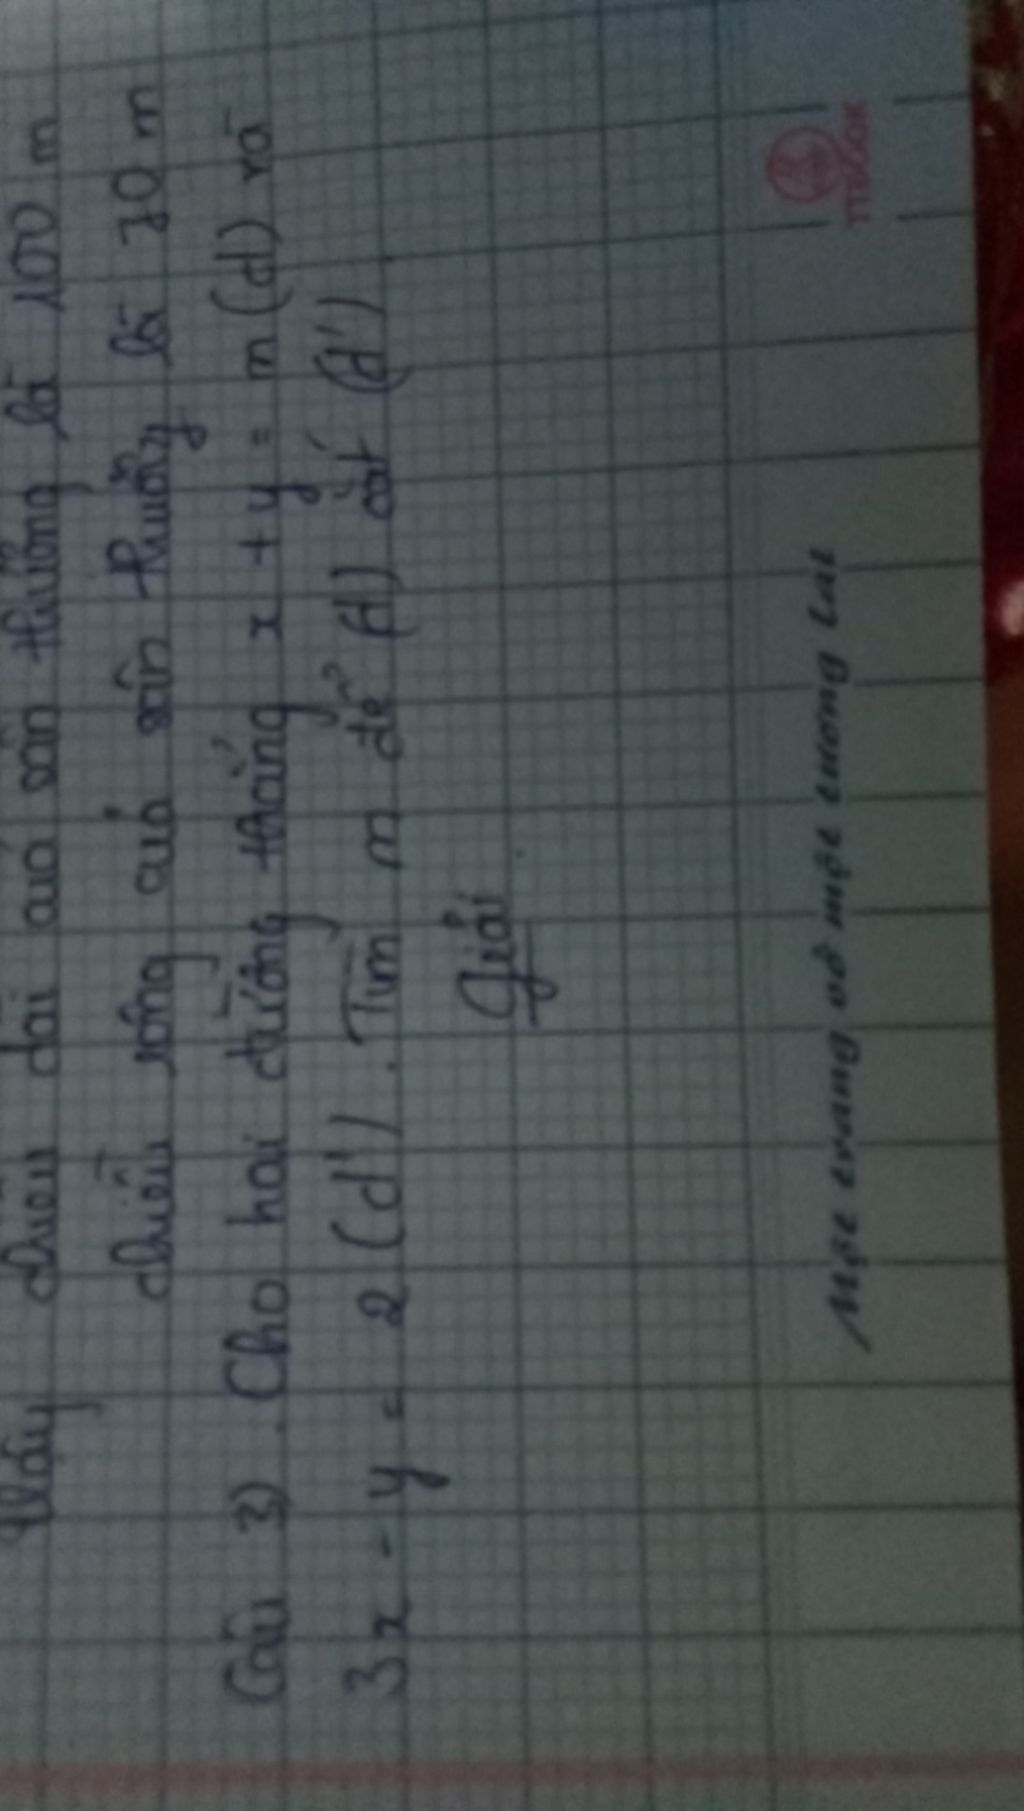 Vậy chiều dài của sân trường là 100 m
chiều rộng của sân trường là 70 m
Câu 3). Cho hai đường thẳng x + y = m (d) và
3x - y = 2 (d'). Tìm m để (d) cắt (d')
Giải
Một trang vở một tương lai